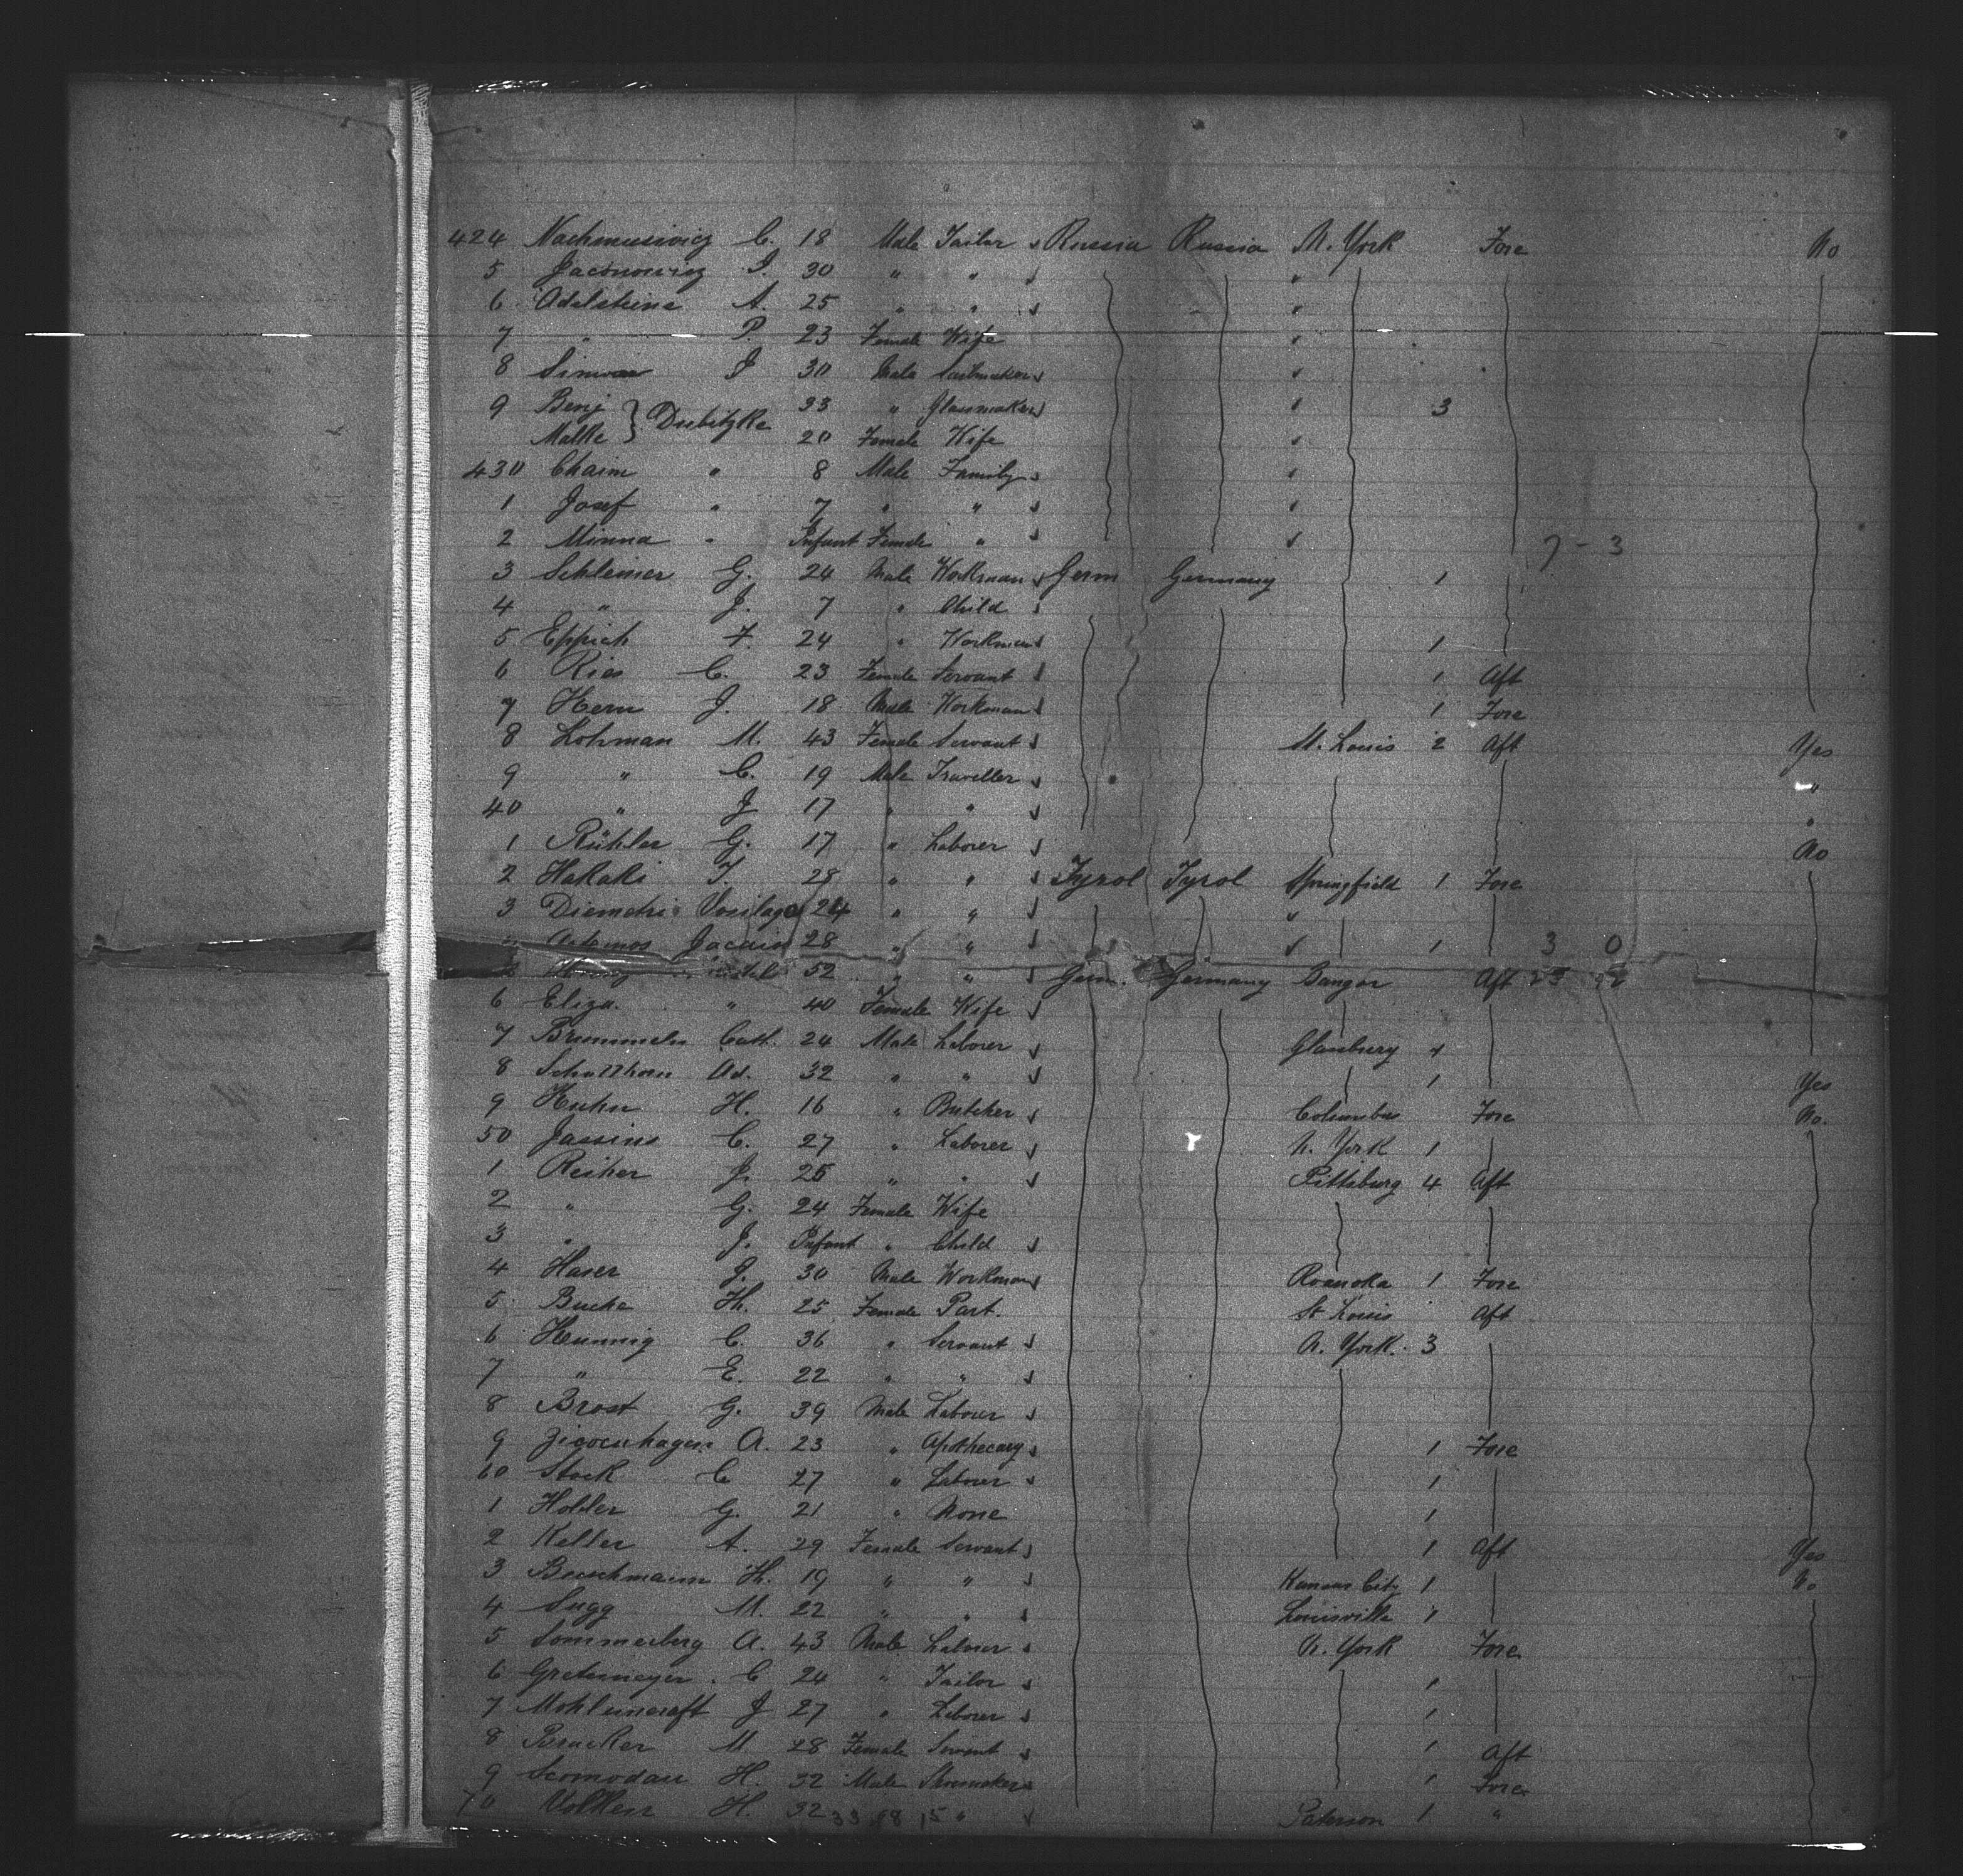 424 Nachmusivicz C. 18 Male Tailor Russia Russia N. York Fore No
5 Jaconowicz I. 30 " "
6 Adelsteine A. 25 " "
7 " P. 23 Female Wife
8 Simon J 30 Male Sailmaker
9 Benj } Dubitzke 23 " Glasmaker 3
Malke 20 Female Wife
430 Chaim " 8 Male Family
1 Josef " 7 " "
2 Minna " Infant Female "
7 - 3
3 Schleiner G. 24 Male Workman Germ Germany 1
4 " J. 7 " Child
5 Eppich F. 24 " Workman 1
6 Ries C. 23 Female Servant 1 Aft
7 Hern J. 18 Male Workman 1 Fore
8 Lohman M. 43 Female Servant St. Louis 2 Aft Yes
9 " C. 19 Male Traveller "
40 " J 17 " " "
1 Rühler G. 17 " Laborer No
2 Hakaki T. 28 " " Tyrol Tyrol Springfield 1 Fore
3 Diemetri 24 " "
28 " " 1 3 0
52 " " Germ. Germany Bangor Aft
6 Eliza " 40 Female Wife
7 Brummeln Cath. 24 Male Laborer
8 Ad. 32 " " 1 Yes
9 Huhn H. 16 " Butcher Columbus Fore No.
50 Jassins C. 27 " Laborer N. York 1
1 Reiher J. 25 " " Pittsburg 4 Aft
2 " G. 24 Female Wife
3 " J. Infant " Child
4 Haser J. 30 Male Workman Roanoka 1 Fore
5 Buche H. 25 Female Part. St Louis Aft
6 Hennig C. 36 " Servant N. York. 3
7 " E. 22 " "
8 Brost G. 39 Male Labour
9 Zigoenhagen A. 23 " Apothecary 1 Fore
60 Stock C 27 " Laborer 1
1 Hobler G. 21 " None 1
2 Keller A. 29 Female Servant 1 Aft Yes
3 Buschmann H. 19 " " Kansas City 1 No
4 Sugg M. 22 " " Louisville 1
5 Sommerberg A. 43 Male Laborer N. York Fore
6 Gretemeyer C 24 " Tailor 1
7 Mohleincraft J 27 " Laborer 1
8 Brucker M 28 Female Servant 1 Aft
9 Scomodau H. 32 Male Shoemaker 1 Fore
70 Volken H. 32 " Paterson 1 "